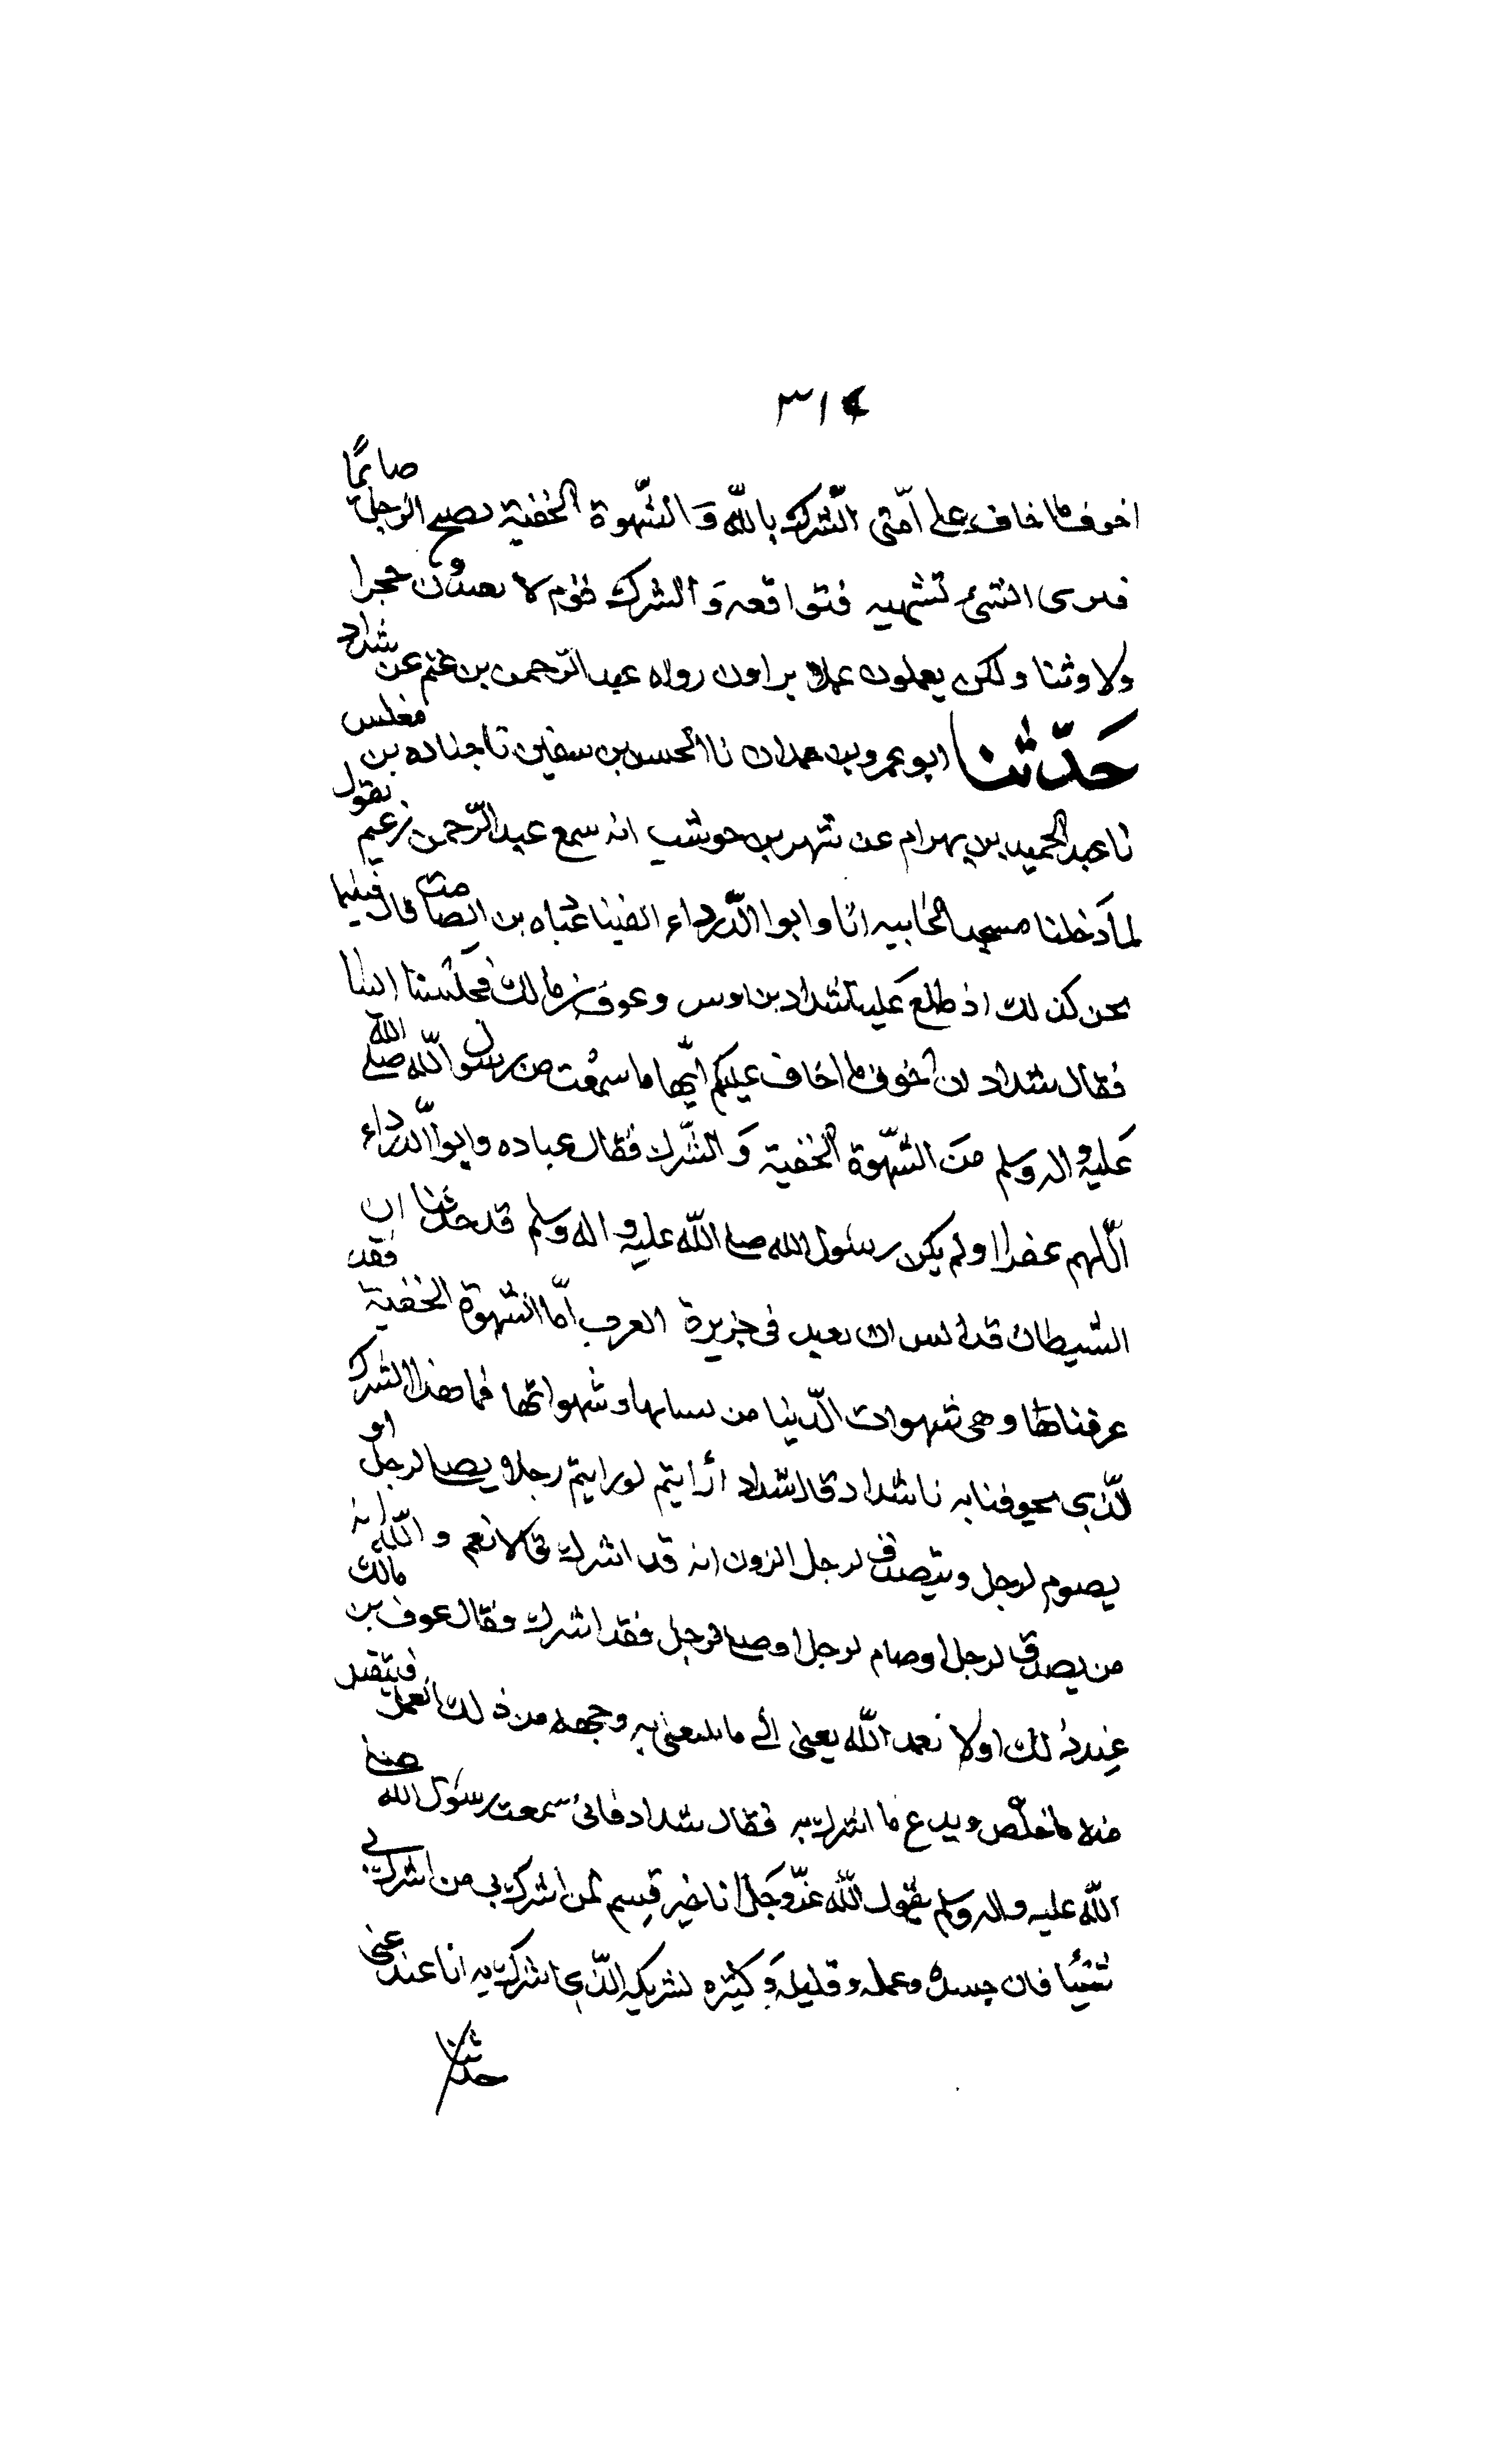 ٣١٤
اخوف ما اخاف على امّتى الشّرك بالله وَ الشّهوة الخفية يصبح الرجل صائمًا
فيرى الشئ تشهيه فتواقعه وَ الشرك قوم لا يعبدون حجرا
ولا وثنا ولكن يعملون عملا يراون رواه عبد الرّحمن بن غنم عن شداد
حَدّثنا ابو عمرو بن حمدان نا الحسن بن سفين نا جناده بن مغلس
نا عبد الحميد بن بهرام عن شهر بن حوشب انه سمع عبد الرّحمن بن غنم يقول
لما دَخلنا مسجد الجابيه انا وابو الدّرداء الفينا عباده بن الصامت قال فبينما
نحن كذلك اذ طلع عَلينا شداد بن اوس وعوف بن مالك فجلسنا الينا
فقال شداد ان اخوف ما اخاف عليكم ايّها ما سمعت من رسول الله صلى الله
عَليه واله وسلم منَ الشّهوة الخفية وَ الشّرك فقال عباده وابو الدّرداء
اللّهم غفرا اولم يكن رسول الله صلى اللّه عليه واله وسلم قد حدثنا ان
الشيطان قد ايس ان يعبد فى جزيرة العرب امّا الشهوة الخفية فقد
عرفناها وهى شهوات الدّنيا من نسايها وشهواتها فما هذا الشرك
الّذى تخوفنا به يا شداد قال شداد أرايتم لو رايتم رجلا يصلى لرجل او
يصوم لرجل ويتصدق لرجل اترون انه قد اشرك قالا نعم و اللّه انه
من تصدق لرجل اوصام لرجل اوصلى لرجل فقد اشرك فقال عوف بن مالك
عِند ذلك اولا يعمد اللّه يعنى الى ما ابتغى به وجهه من ذلك العمل فيتقبل
منه ما خلّص ويدع ما اشرك به فقال شداد فانى سمعت رسول الله صلى
اللّه عليه واله وسلم يقول اللّه عزّ وجَلّ انا خير قسيم لمن اشرك بى من اشرك بى
شيئا فان جسده وعمله وقليله وَكثيره لشريكه الّذى اشرك به انا عنه غنى
حدثنا